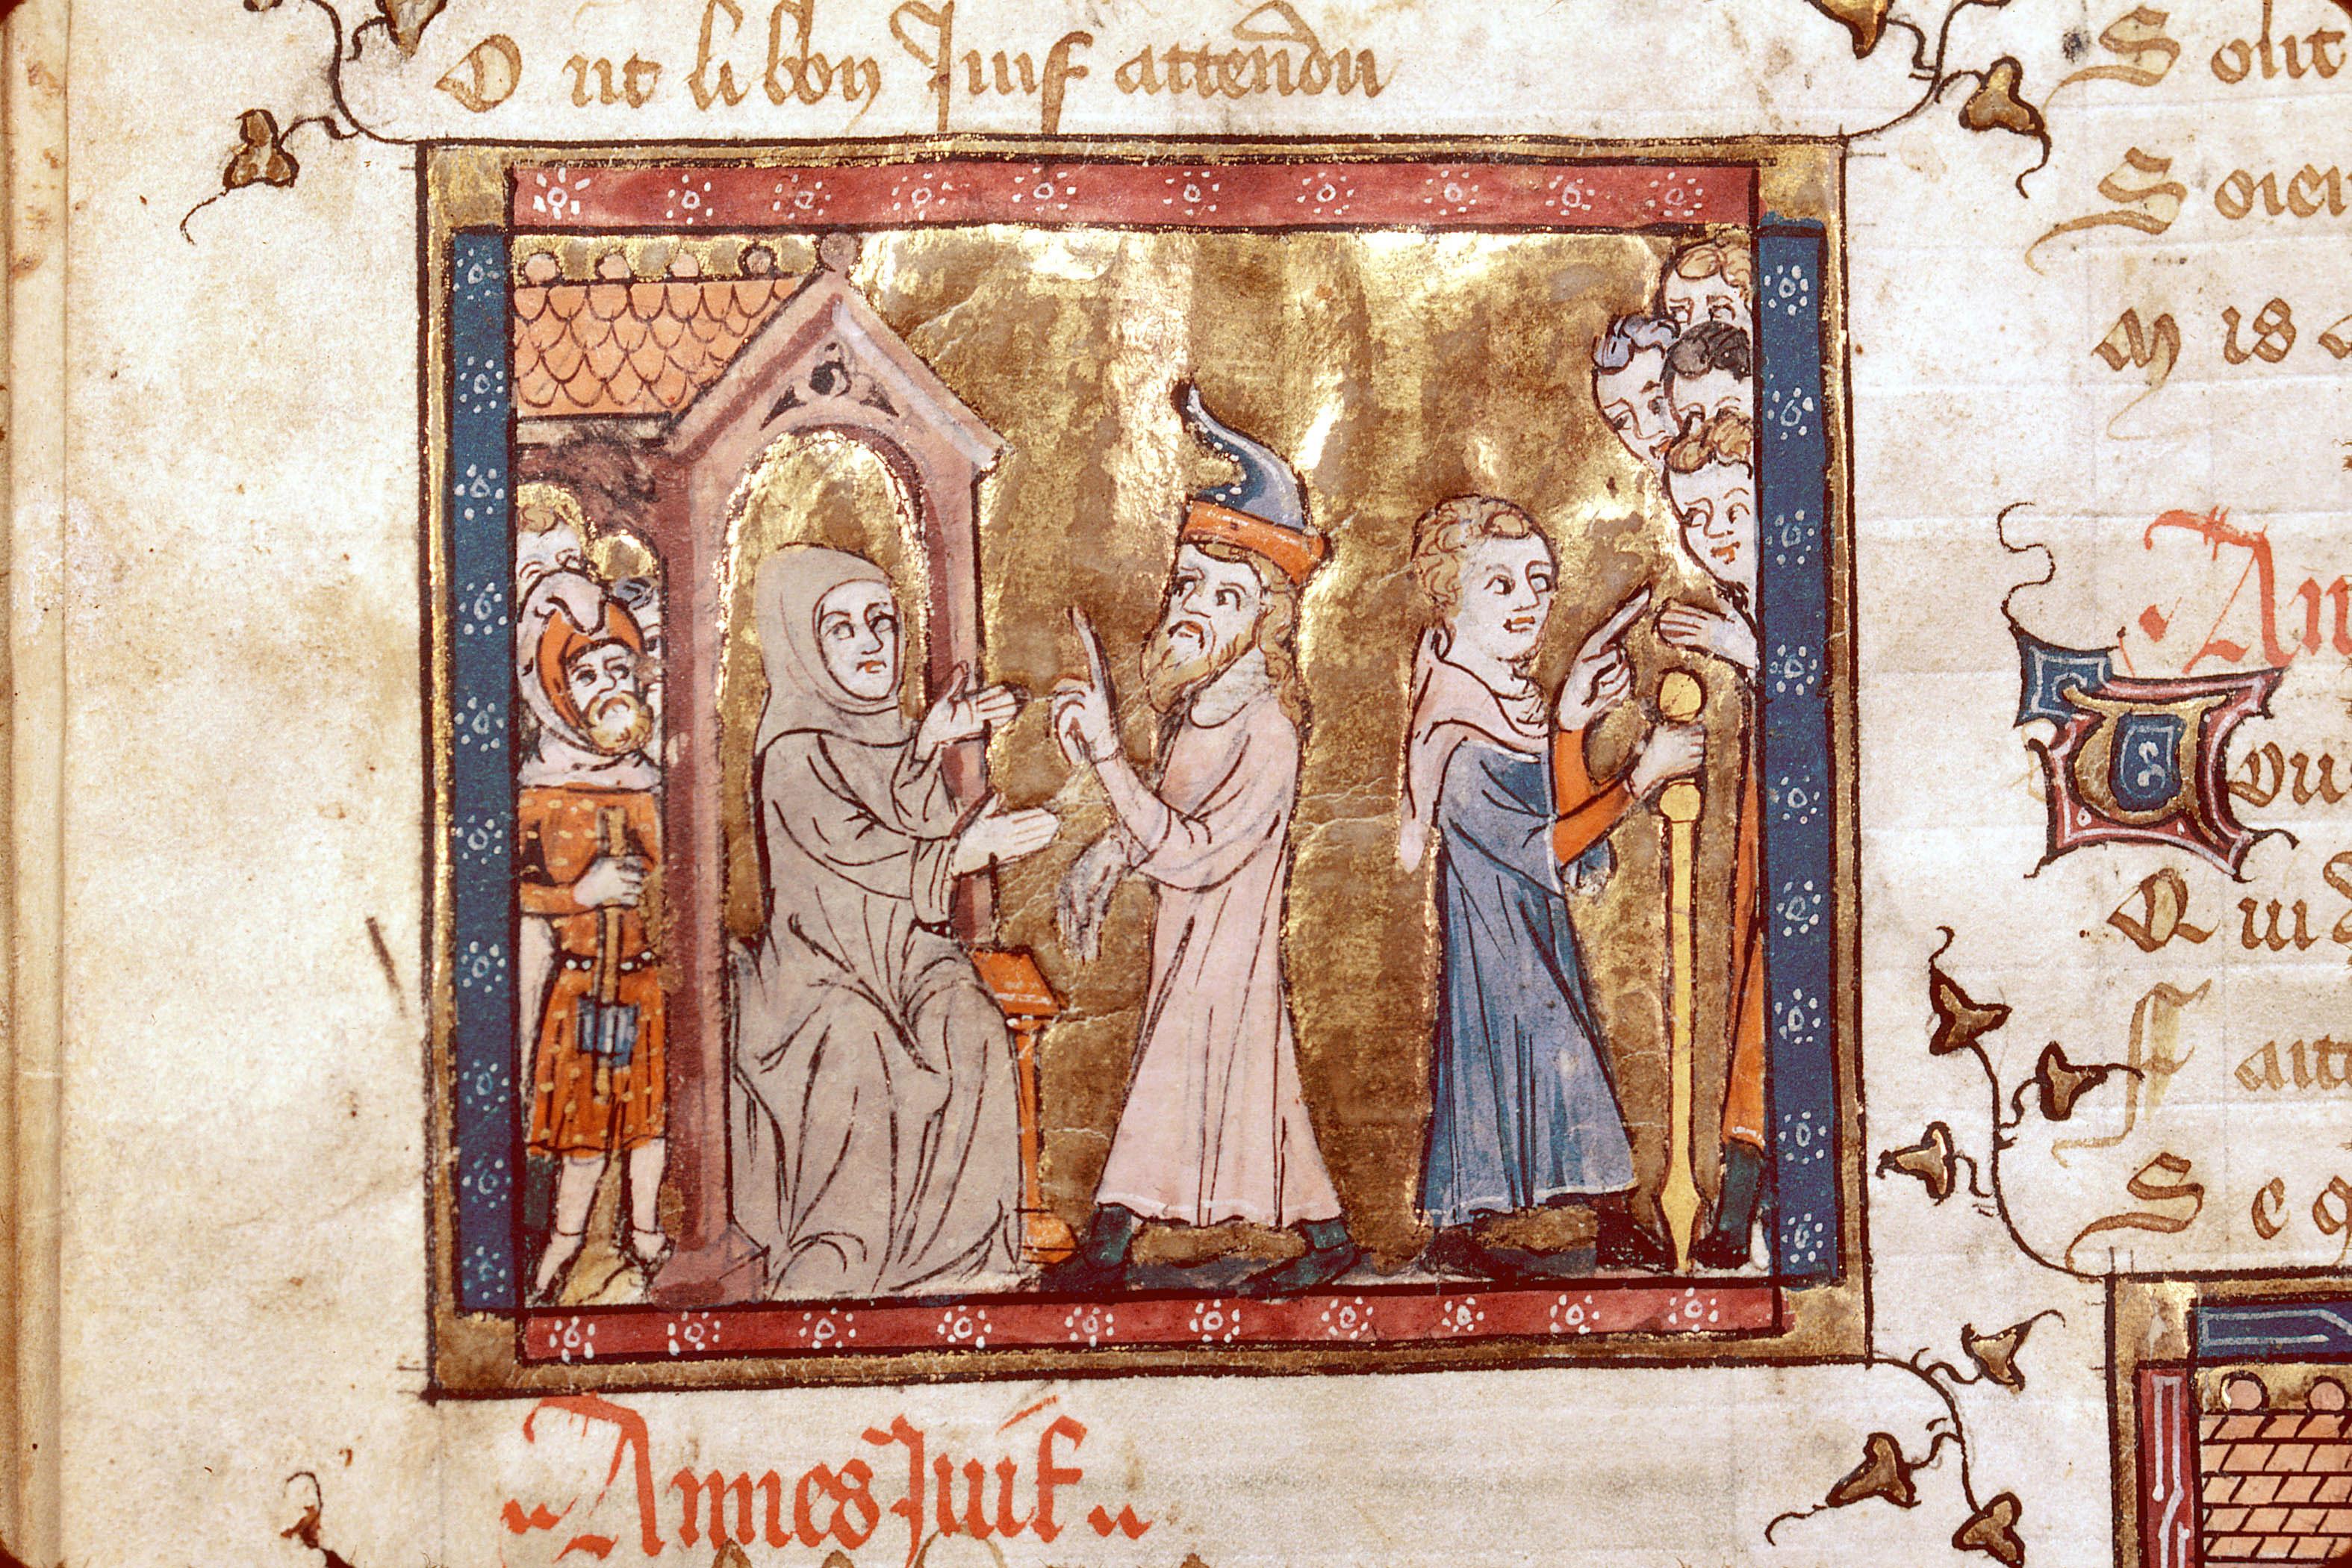 Ont li bon Juif attendu
Annes Juif
Solit
Soien
Mis
An
Vou
Qui
Fait
Se